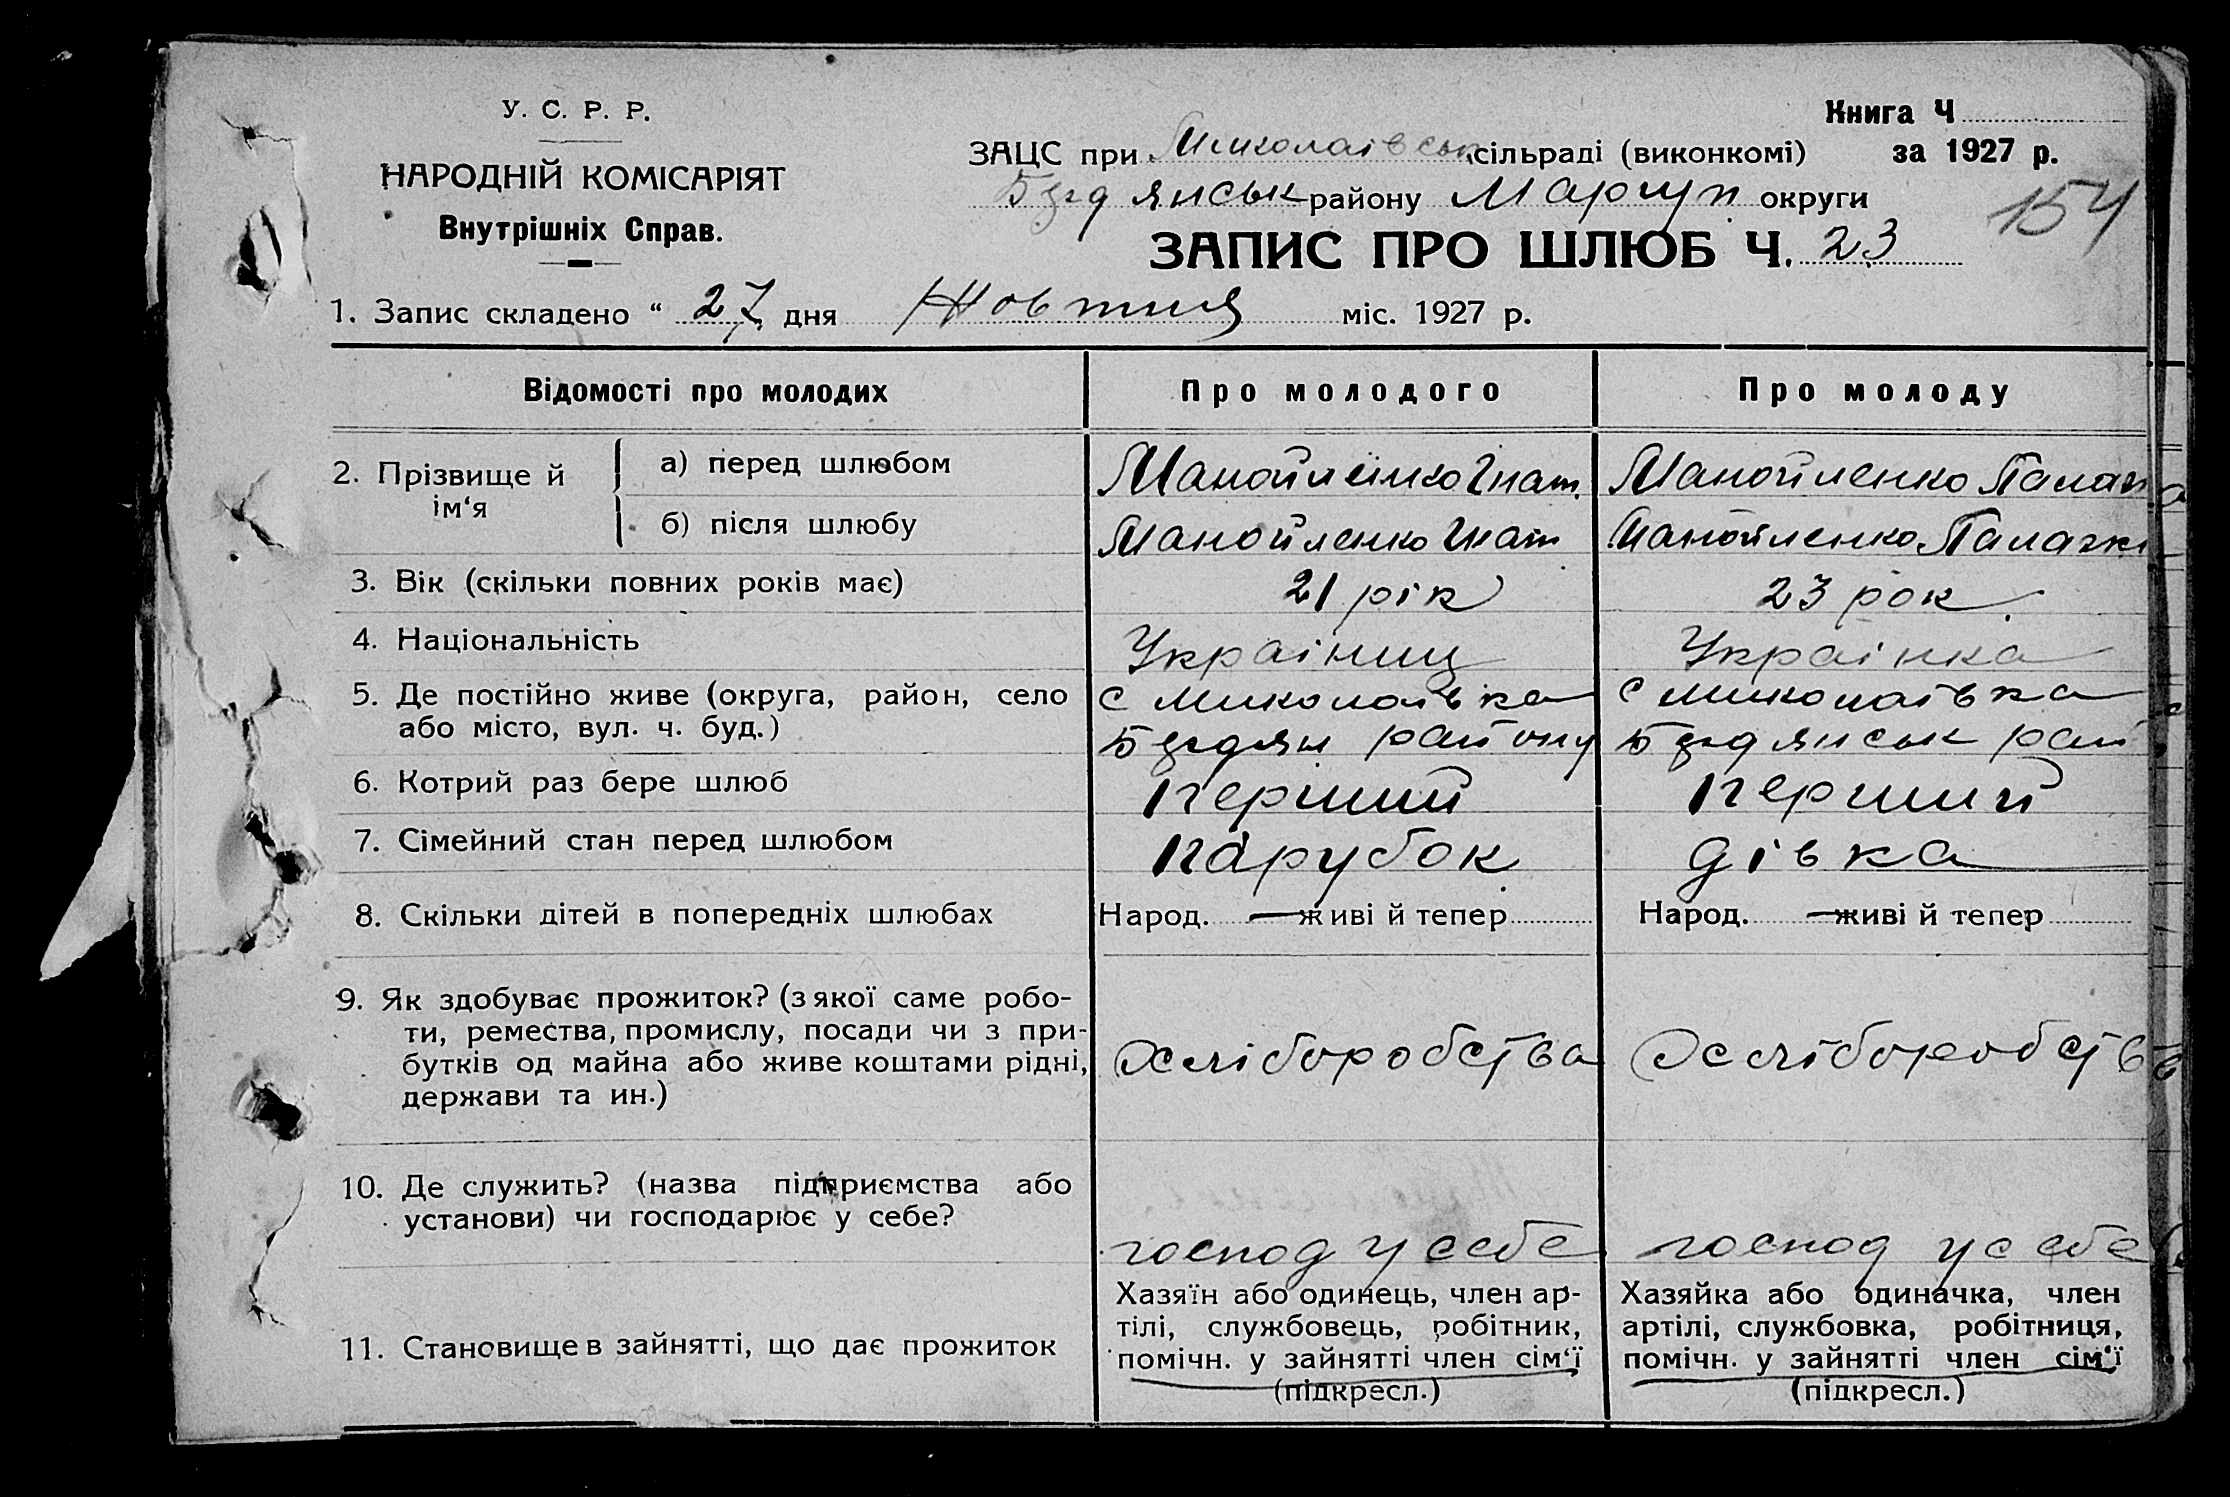 У. С. Р. Р.
НАРОДНІЙ КОМІСАРІЯТ
Внутрішніх Справ.
Книга Ч
ЗАЦС при Миколаївськ сільраді (виконкомі) за 1927 р.
Бердянськ району Маріуп округи
154
ЗАПИС ПРО ШЛЮБ Ч. 23
1. Запис складено “ 27 дня Жовтня міс. 1927 р.
Відомості про молодих Про молодого Про молоду
2. Прізвище й ім‘я
а) перед шлюбом Манойленко Гнат. Манойленко
б) після шлюбу Манойленко Гнат Манойленко
3. Вік (скільки повних років має) 21 рік 23 рок
4. Національність Українец Українка
5. Де постійно живе (округа, район, село с Миколаївка с Миколаївка
або місто, вул. ч. буд.) Бердян району Бердянськ рай
6. Котрий раз бере шлюб перший перший
7. Сімейний стан перед шлюбом парубок дівка
8. Скільки дітей в попередніх шлюбах Народ. — живі й тепер Народ. — живі й тепер
9. Як здобуває прожиток? (з якої саме робо-
ти, ремества, промислу, посади чи з при-
бутків од майна або живе коштами рідні, хліборобства хліборобства
держави та ин.)
10. Де служить? (назва підприємства або
установи) чи господарює у себе?
господ у себе господ у себе
11. Становище в зайнятті, що дає прожиток
Хазяїн або одинець, член ар-
тілі, службовець, робітник,
помічн. у зайнятті член сім‘ї
(підкресл.)
Хазяйка або одиначка, член
артілі, службовка, робітниця,
помічн. у зайнятті член сім‘ї
(підкресл.)